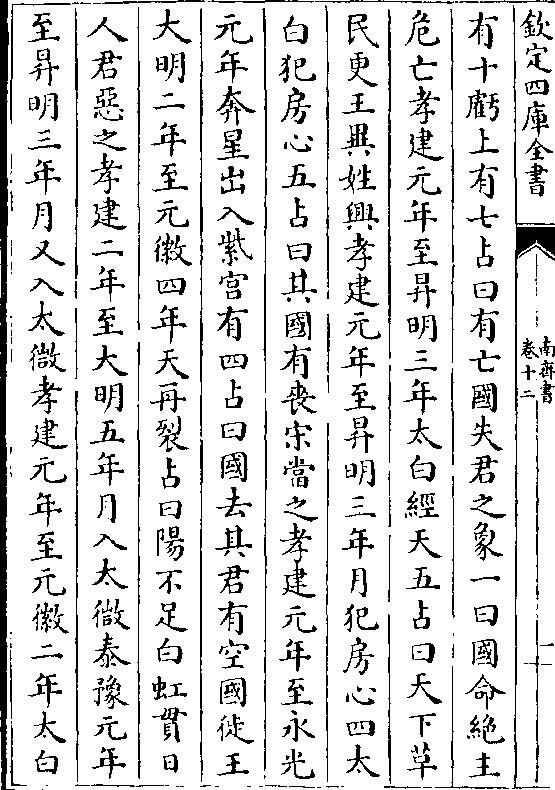 欽定四庫全書
南齊書
卷十二
一
有十虧上有七占曰有亡國失君之象一曰國命絶主
危亡孝建元年至昇明三年太白經天五占曰天下草
民更王異姓興孝建元年至昇明三年月犯房心四太
白犯房心五占曰其國有喪宋當之孝建元年至永光
元年奔星出入紫宫有四占曰國去其君有空國徙王
大明二年至元徽四年天再裂占曰陽不足白虹貫日
人君惡之孝建二年至大明五年月入太微泰豫元年
至昇明三年月又入太微孝建元年至元徽二年太白